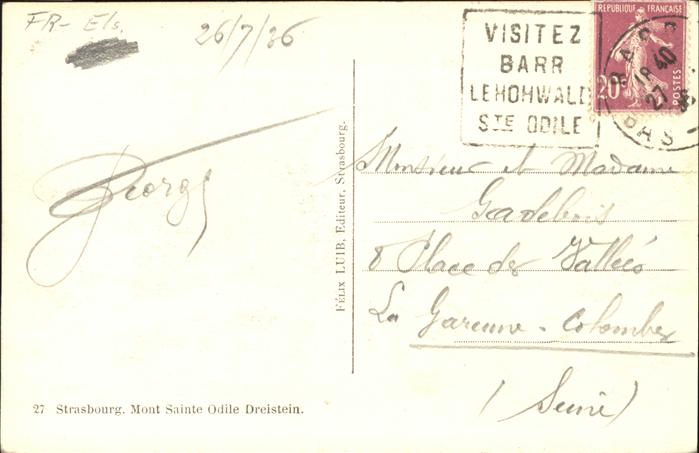 FR- Els.
26/7/36
VISITEZ
BARR
LEHOHWALD
STE ODILE
REPUBLIQUE FRANÇAISE
20c
POSTES
BARR
18 40
27
BAS
Georges
FÉLIX LUIB, Editeur, Strasbourg.
Monsieur et Madame
8 Place des Vallées
La Garenne-Colombes
(Seine)
27 Strasbourg. Mont Sainte Odile Dreistein.